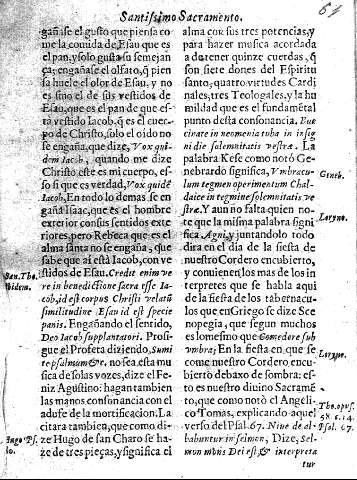 Santissimo Sacramento.
64
gañase el gusto que piensa co
me la comida de Esau que es
el pan, y solo gusta su semejan
ça; engañase el olfato, q̃ pien
sa huele el olor de Esau, y no
es sino el de sus vestidos de
Esau, que es el pan de que es-
ta vestido Iacob, q̃ es el cuer-
po de Christo, solo el oido no
se engaña, que dize, Vox qui-
dem Iacob, quando me dize
Christo este es mi cuerpo, es-
so si que es verdad, Vox quidẽ
Iacob, En todo lo demas se en
gaña Isaac, que es el hombre
exterior consus sentidos exte
riores, pero Rebeca que es el
alma santa no se engaña, que
sabe que asi està Iacob, con ve
stidos de Esau. Credit enim ve
re in benedictione sacra esse Ia-
cob, id est corpus Christi velatũ
similitudine Esau id est specie
panis. Engañando el sentido,
Deo Iacob supplantatori. Prosi-
gue el Profeta diziendo, Sumi
te psalmum &c. no sea esta mu
sica de solas vozes, dize el Fe-
niz Agustino: hagan tambien
las manos consonancia con el
adufe de la mortificacion. La
citara tambien, que como di-
ze Hugo de san Charo se ha-
ze de tres pieças, y significa el
San. Tho.
ibidem.
Hugo Ps.
alma con sus tres potencias, y
para hazer musica acordada
a de tener quinze cuerdas, q̃
son siete dones del Espiritu
santo, quatro virtudes Cardi
nales, tres Teologales, y la hu
mildad que es el fundamẽtal
punto desta consonancia. Buc
cinate in neomenia tuba in insig
ni die solemnitatis vestræ. La
palabra Kese como notò Ge-
nebrardo significa, Vmbracu-
lum tegmen operimentum Chal-
daice in tegmine solemnitatis ve
stræ. Y aun no falta quien no-
te que la misma palabra signi
fica, Agni, y juntandolo todo
dira en el dia de la fiesta de
nuestro Cordero encubierto,
y conuienen los mas de los in
terpretes que se habla aqui
de la fiesta de los tabernacu-
los que en Griego se dize Sce
nopegia, que segun muchos
es lo mesmo que Comedere sub
vmbra; En la fiesta en que se
come nuestro Cordero encu-
bierto debaxo de sombra: es-
to es nuestro diuino Sacramẽ
to, que como notò el Angeli-
co Tomas, explicando aquel
verso del Psal. 67. Niue deal-
babuntur in selmon, Dize, Sel-
mon mons Dei est, & interpreta
tur
Genebr.
Lorynº.
Tho. opus.
58. c. 14.
Psal. 67.